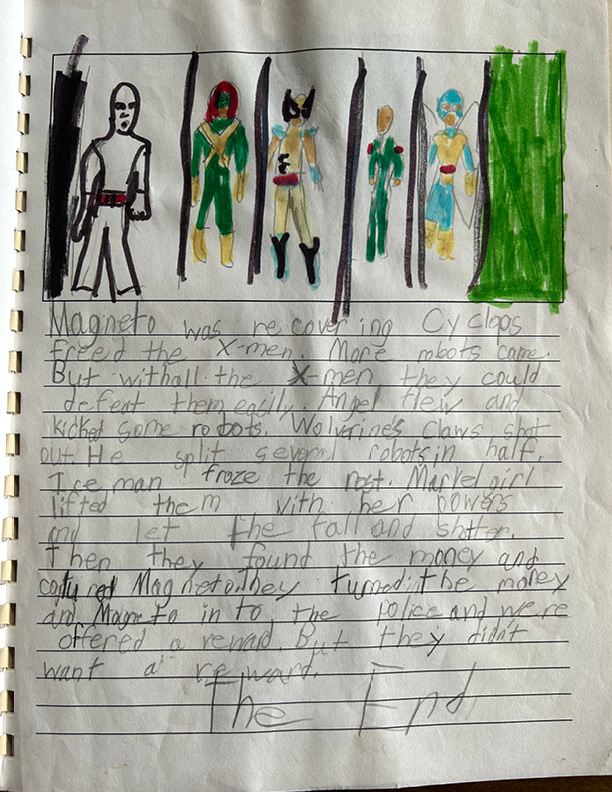 Magneto was recovering Cyclops
freed the X-men. More robots came.
But withall the X-men they could
defeat them easily. Angel flew and
kicked some robots. Wolvrine's claws shot
out. He split several robots in half.
Iceman froze the rest. Marvel girl
lifted them with her powers
and let the fall and shtter.
Then they found the money and
captured Magneto. They turned the money
and Magneto in to the police and were
offered a reward. But they didn't
want a reward.
The End